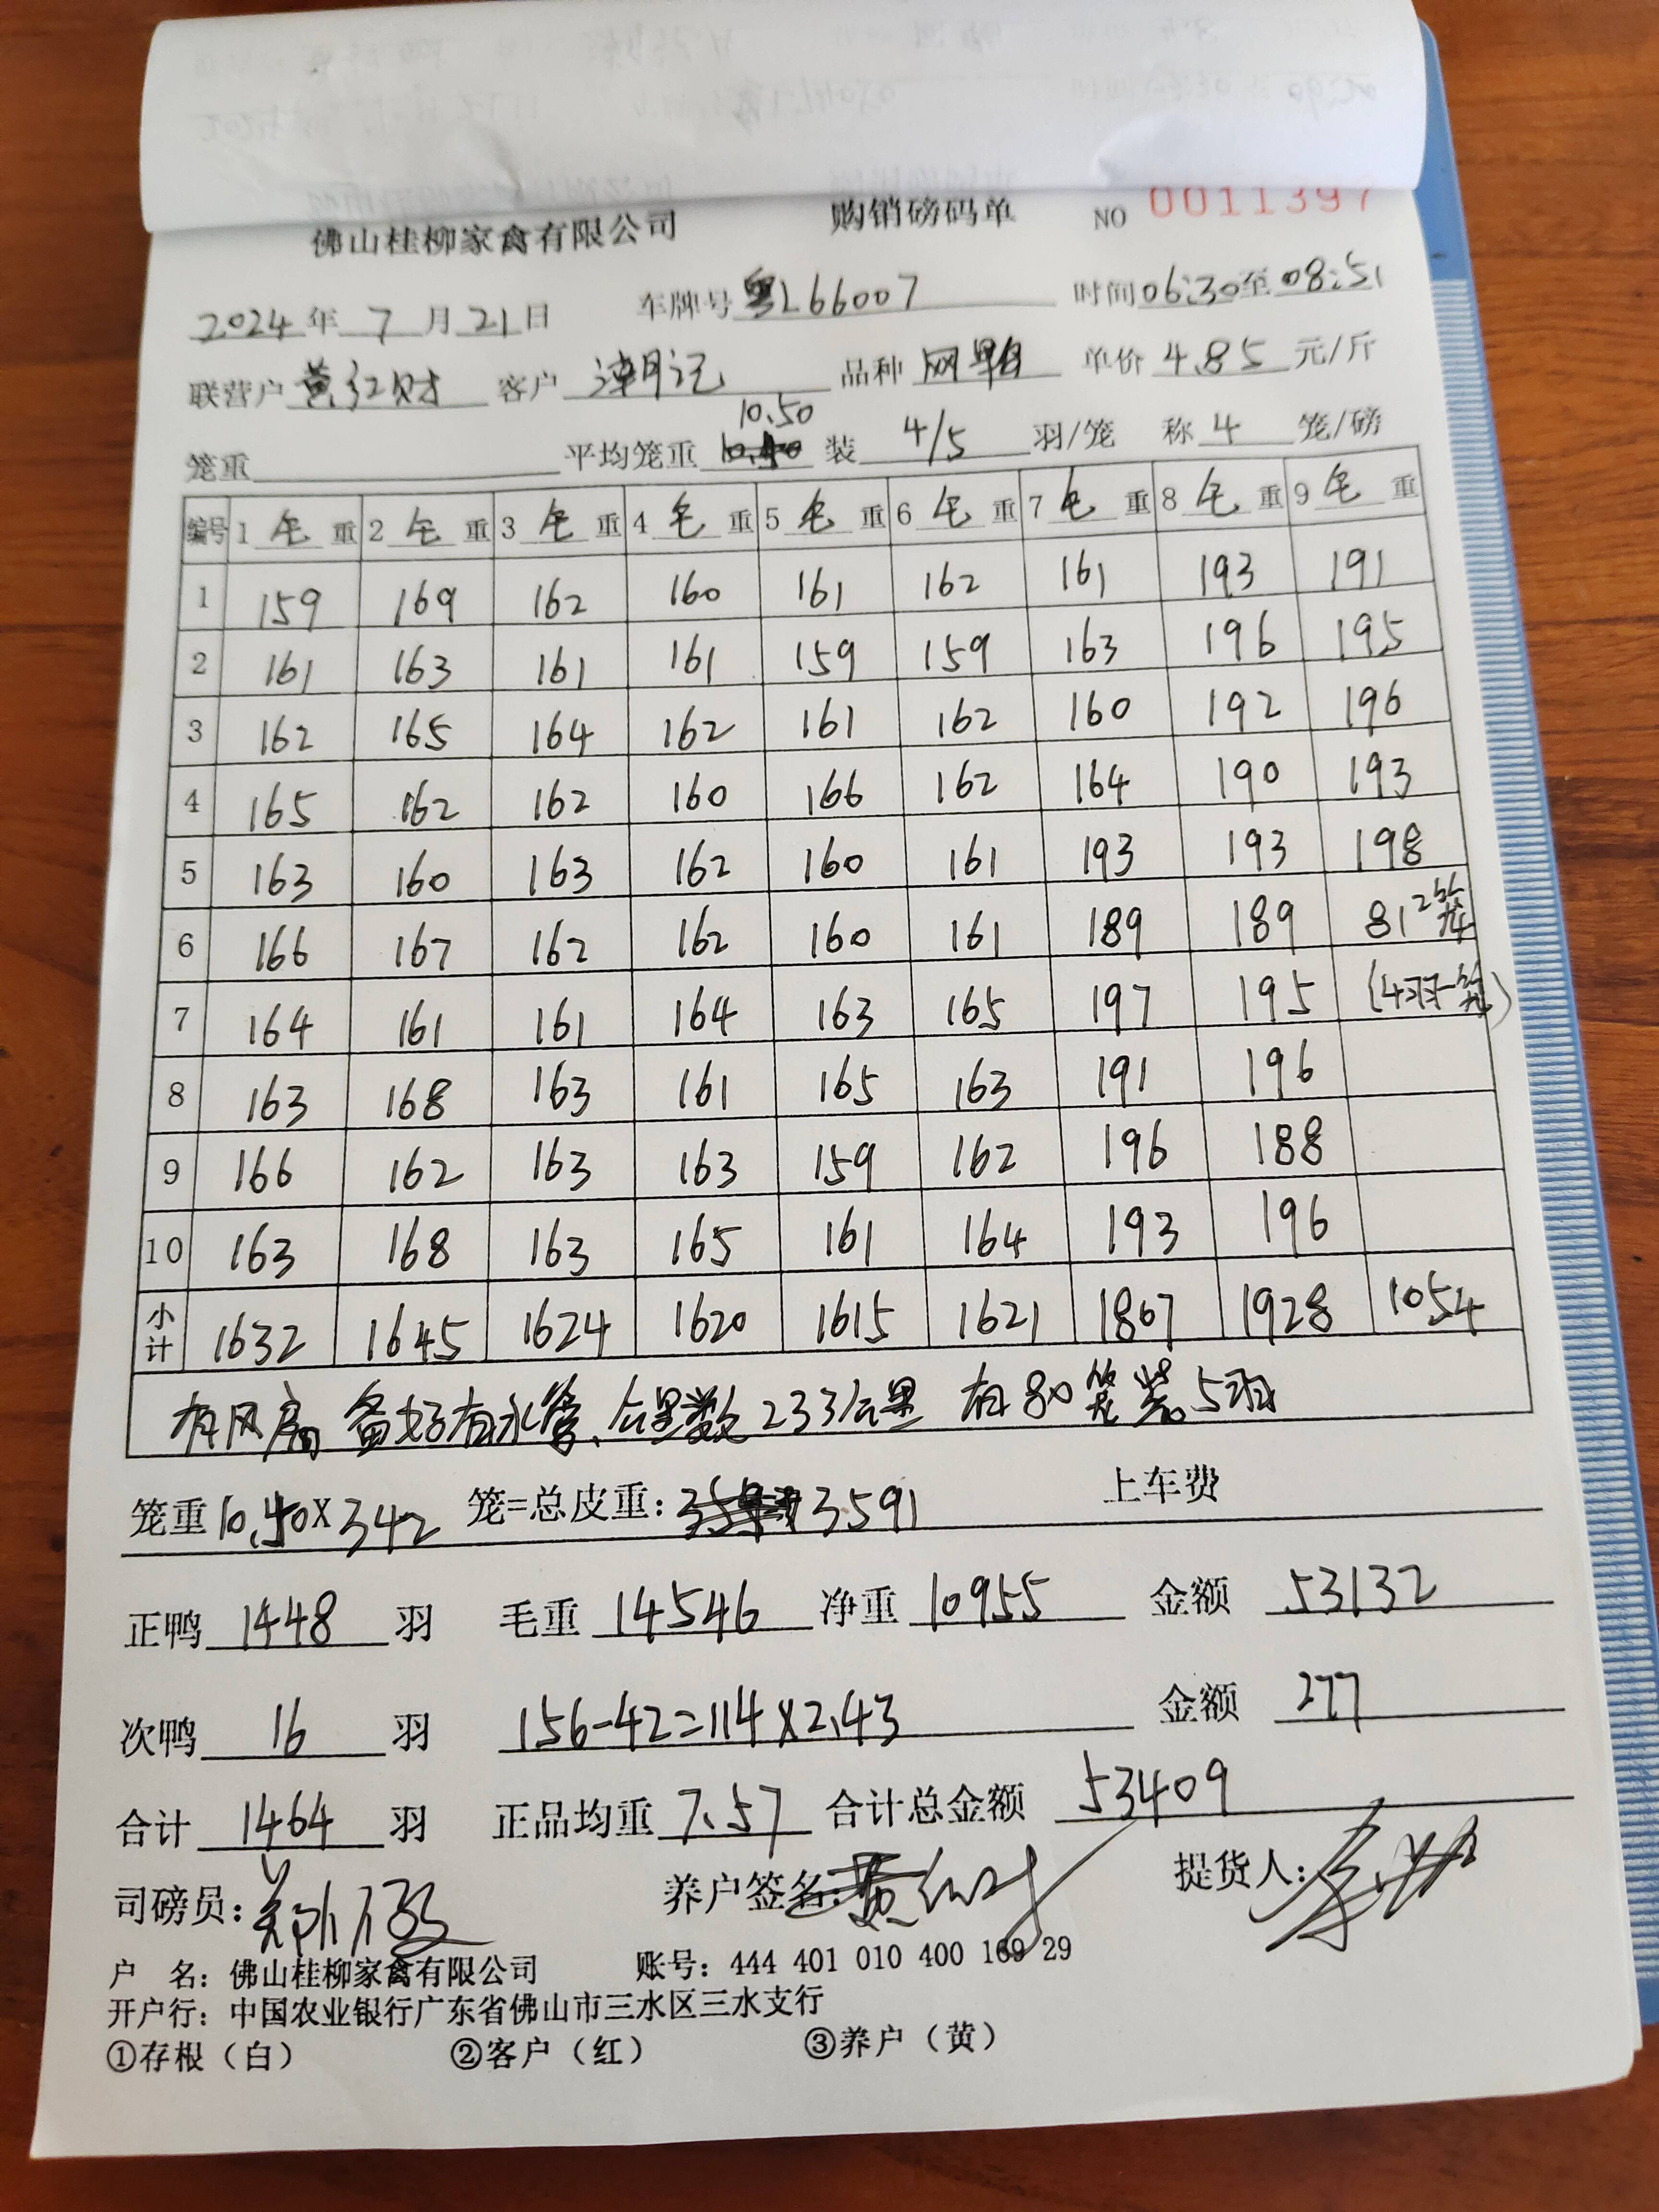 佛山桂柳家禽有限公司 购销磅码单 NO 0011397
2024年7月21日 车牌号粤L66007 时间06:30至08:51
联营户黄红财 客户潮记 品种网鸭 单价4.85元/斤
10.50
笼重 平均笼重 装4/5羽/笼 称4笼/磅
编号 1毛重 2毛重 3毛重 4毛重 5毛重 6毛重 7毛重 8毛重 9毛重
1 159 169 162 160 161 162 161 193 191
2 161 163 161 161 159 159 163 196 195
3 162 165 164 162 161 162 160 192 196
4 165 162 162 160 166 162 164 190 193
5 163 160 163 162 160 161 193 193 198
6 166 167 162 162 160 161 189 189 81 2笼
7 164 161 161 164 163 165 197 195 (4羽一笼)
8 163 168 163 161 165 163 191 196
9 166 162 163 163 159 162 196 188
10 163 168 163 165 161 164 193 196
小计 1632 1645 1624 1620 1615 1621 1807 1928 1054
有风扇 备好有水管、公里数233公里 有80笼装5羽
笼重10.50X342 笼=总皮重:3591 上车费
正鸭1448羽 毛重14546 净重10955 金额53132
次鸭16羽 156-42=114X2.43 金额277
合计1464羽 正品均重7.57 合计总金额53409
司磅员: 养户签名:黄红财 提货人:
户 名:佛山桂柳家禽有限公司 账号:444 401 010 400 169 29
开户行:中国农业银行广东省佛山市三水区三水支行
①存根(白) ②客户(红) ③养户(黄)